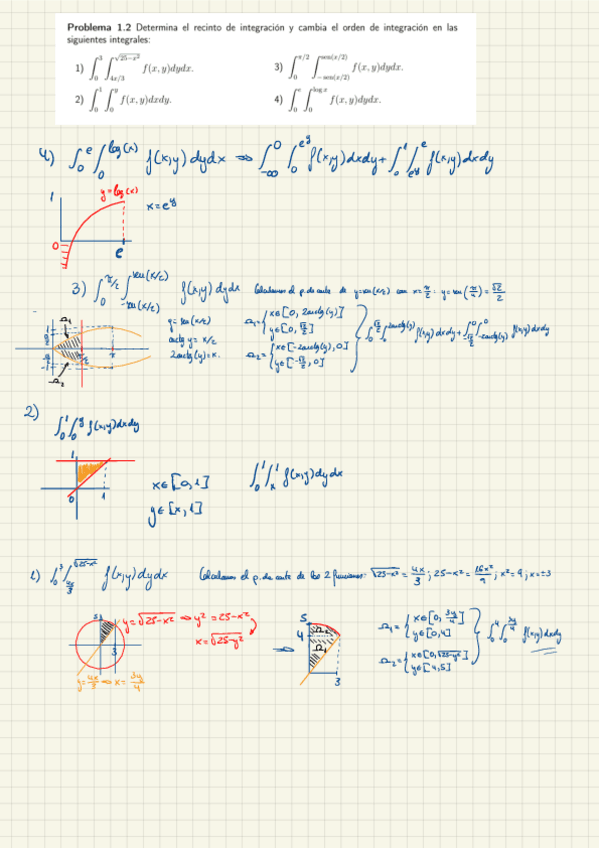 Problema 1.2 Determina el recinto de integración y cambia el orden de integración en las
siguientes integrales:
1) ∫_0^3 ∫_{4x/3}^{√(25−x²)} f(x,y)dydx.
3) ∫_0^{π/2} ∫_{−sen(x/2)}^{sen(x/2)} f(x,y)dydx.
2) ∫_0^1 ∫_0^y f(x,y)dxdy.
4) ∫_0^e ∫_0^{log x} f(x,y)dydx.
4) ∫_0^e ∫_0^{log(x)} f(x,y) dydx ⇒ ∫_{-∞}^0 ∫_0^{e^y} f(x,y)dxdy + ∫_0^1 ∫_{e^y}^e f(x,y)dxdy
y=log(x)
1
x=e^y
0
e
3) ∫_0^{π/2} ∫_{-sen(x/2)}^{sen(x/2)} f(x,y) dydx Calculamos el p. de corte de y=sen(x/2) con x=π/2: y=sen(π/4)=√2/2
y=sen(x/2)
arcsg y=x/2
2arcsg(y)=x.
Ω₁={x∈[0, 2arcsg(y)]
y∈[0, √2/2]
Ω₂={x∈[-2arcsg(y), 0]
y∈[-√2/2, 0]
∫_0^{√2/2} ∫_0^{2arcsg(y)} f(x,y)dxdy + ∫_{-√2/2}^0 ∫_{-2arcsg(y)}^0 f(x,y)dxdy
2)
∫_0^1 ∫_0^y f(x,y)dxdy
1
0
1
x∈[0,1]
y∈[x,1]
∫_0^1 ∫_x^1 f(x,y)dydx
1) ∫_0^3 ∫_{4x/3}^{√(25-x²)} f(x,y)dydx Calculamos el p. de corte de las 2 funciones: √(25-x²) = 4x/3; 25-x² = 16x²/9; x²=9; x=±3
5
y=√(25-x²) ⇒ y²=25-x²
x=√(25-y²)
3
y=4x/3 ⇒ x=3y/4
⇒
5
4
Ω₂
Ω₁
3
Ω₁={x∈[0, 3y/4]
y∈[0,4]
Ω₂={x∈[0, √(25-y²)]
y∈[4,5]
∫_0^4 ∫_0^{3y/4} f(x,y)dxdy